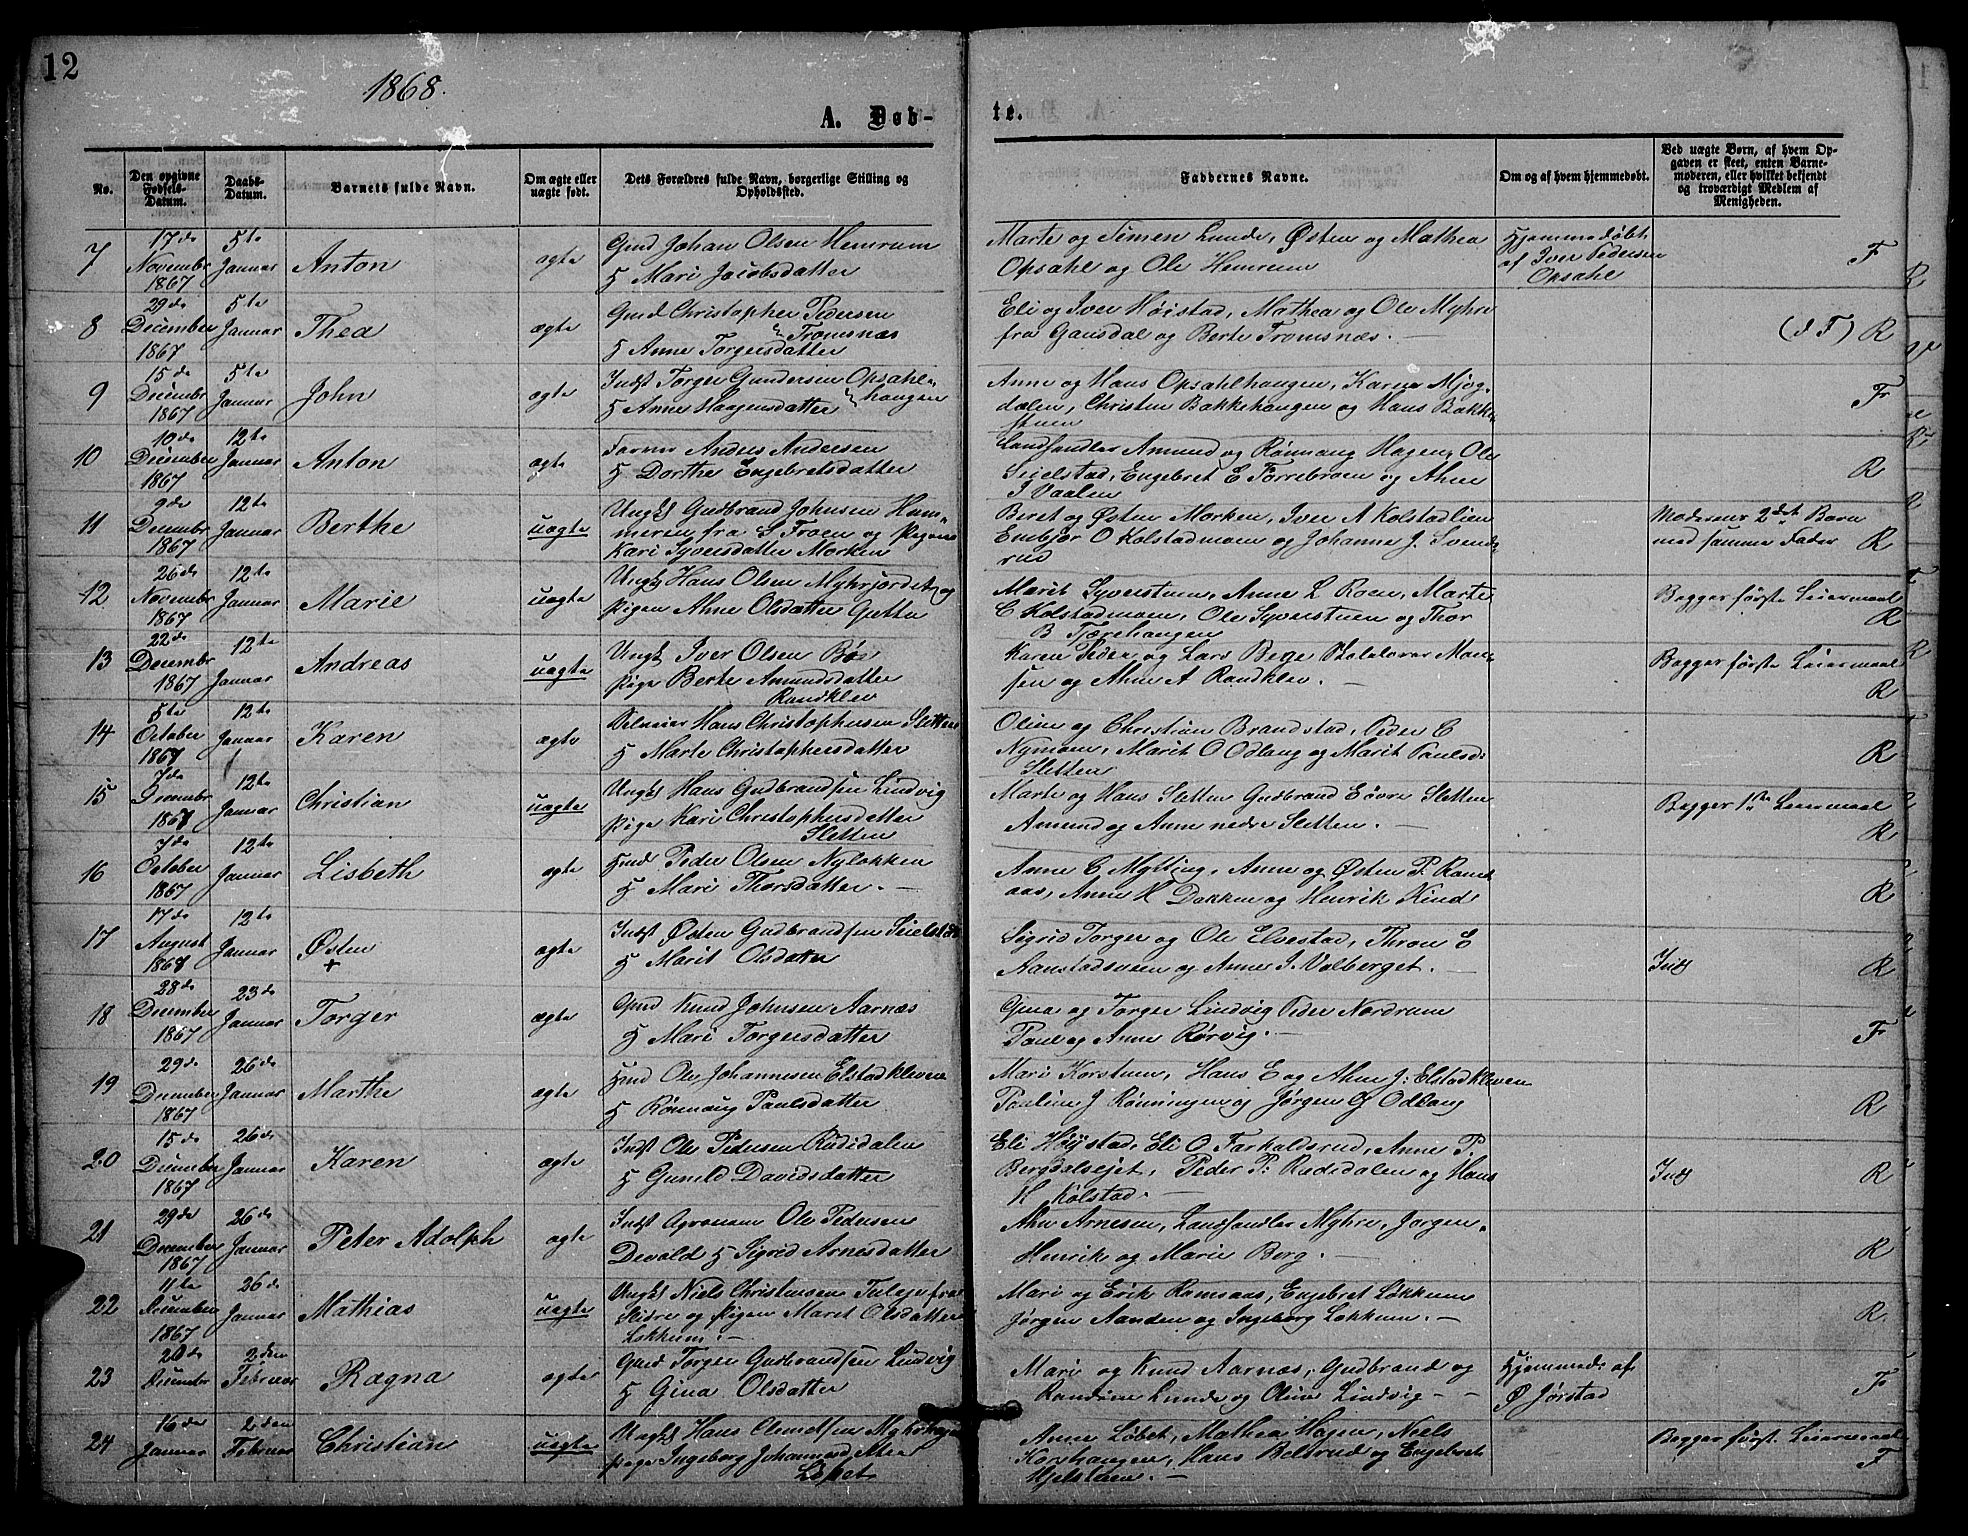 12
1868.
A. Døb-
te.
No.
Den opgivne Fødsels-Datum.
Daabs-Datum.
Barnets fulde Navn.
Om ægte eller uægte født.
Dets Forældres fulde Navn, borgerlige Stilling og Opholdssted.
Faddernes Navne.
Om og af hvem hjemmedøbt.
Ved uægte Børn, af hvem Opgaven er skeet, enten Barnemoderen, eller hvilket bekjendt og troværdigt Medlem af Menigheden.
7 17de November 1867 5te Januar Anton ægte
Gmd Johan Olsen Hemrum
H Mari Jacobsdatter
Marte og Simen Lunde, Østen og Mathea
Opsahl og Ole Hemrum
Hjemmedøbt
af Iver Pedersen
Opsahl
F
8 29de December 1867 5te Januar Thea ægte
Gmd Christopher Pedersen
Tromsnæs
H Anne Torgersdatter
Eli og Iver Høistad, Mathea og Ole Myhre
fra Gausdal og Berte Tromsnæs.
(d F) R
9 15de December 1867 5te Januar John ægte
Indst Torger Gundersen Opsahl-
haugen
H Anne Haagensdatter
Anne og Hans Opsahlhaugen, Karen Mjog-
dalen, Christen Bakkehaugen og Hans Bakke-
stuen
Fr
10 10de December 1867 12te Januar Anton ægte
Farver Anders Andersen
H Dorthe Engebretsdatter
Landhandler Amund og Rønnaug Hagen, Ole
Seielstad, Engebret E Torrebroen og Ahne
J Vaalen
R
11 9de December 1867 12te Januar Berthe uægte
Ungk Gudbrand Johnsen Ham-
meren fra S Froen og Pigen
Kari Syversdatter Morken
Beret og Østen Morken, Iver A Kolstadlien
Embjør O Kolstadmoen og Johanne J. Svends-
rud
Moderens 2det Barn
med samme Fader R
12 26de November 1867 12te Januar Marie uægte
Ungk Hans Olsen Myhrjordet og
Pigen Ahne Olsdatter
Marit Syverstuen, Anne L Roen, Marte
C Kolstadmoen, Ole Syverstuen og Thor
B Tjærehaugen
Begges første Leiermaal
R
13 22de December 1867 12te Januar Andreas uægte
Ungk Iver Olsen Bø
Pige Berte Amundsdatter
Randklev
Karen Peder og Lars Berge
og Ahne A Randklev.
Begges første Leiermaal
R
14 5te October 1867 12te Januar Karen ægte
Hans Christophersen Sletten
H Marte Christophersdatter
Oline og Christian Brandstad, Peder C
Nymoen, Marit O Odlaug og Marit Paulsd:
Sletten
R
15 7de December 1867 12te Januar Christian uægte
Ungk Hans Gudbrandsen Lindvig
Pige Kari Christophersdatter
Sletten
Marte og Hans Sletten Gudbrand Søvre Sletten
Amund og Anne nedre Sletten.
Begges 1ste Leiermaal
R
16 7de October 1867 12te Januar Lisbeth ægte
Hmd Peder Olsen Nyløkken
H Mari Thorsdatter.
Anne C Mytting, Anne og Østen P. Rams-
aas, Anne H Dakken og Henrik Kind
R
17 17de August 1867 12te Januar Østen + ægte
Indst Østen Gudbrandsen Seielstad
H Marit Olsdatter
Sigrid Torger og Ole Elvestad, Thron E
Aanstadsveen og Anne J. Valberget.
Inds R
18 28de December 1867 23de Januar Torger ægte
Gmd Knud Johnsen Aarnæs
H Mari Torgersdatter
Gina og Torger Lindvig Peder Nordrum
Paul og Anne Rørvig.
Fr
19 29de December 1867 26de Januar Marthe ægte
Hmd Ole Johannesen Elstadkleven
H Rønnaug Paulsdatter
Mari Korstuen, Hans E og Ahne J: Elstadkleven
Pauline J Rønningen og Jørgen G Odlaug
R
20 15de December 1867 26de Januar Karen ægte
Indst Ole Pedersen Rudidalen
H Gunild Davidsdatter
Eli Høystad, Eli O Farkaldsrud, Anne P.
Bergdalseiet, Peder P: Rudidalen og Hans
H Kolstad.
Inds R
21 29de December 1867 26de Januar Peter Adolph ægte
Indst Agronom Ole Pedersen
Devold H Sigrid Arnesdatter
Ahne Arnesen, Landhandler Myhre, Jorgen,
Henrik og Marie Berg.
R
22 11te December 1867 26de Januar Mathias uægte
Ungk Niels Christensen Tulien fra
Slidre og Pigen Maret Olsdatter
Løkkum.
Mari og Erik Ramsaas, Engebret Løkkum
Jørgen Aanden og Ingeborg Løkkum.
R.
23 20de December 2den Februar Ragna ægte
Gmd Torger Gudbrandsen Lindvig
H Gina Olsdatter
Mari og Knud Aarnæs, Gudbrand og
Randine Lunde og Oline Lindvig
Hjemmede af
Ø Jørstad
Fr
24 16de Januar 2den Februar Christian uægte
Ungk Hans Clemetsen Myhrhagen
Pige Ingeborg Johannesdatter
Løpet
Anne Løbet, Mathea Hagen, Niels
Korshaugen, Hans Beltrud og Engebret
Hjelstuen.
Begges først. Leiermaal
F